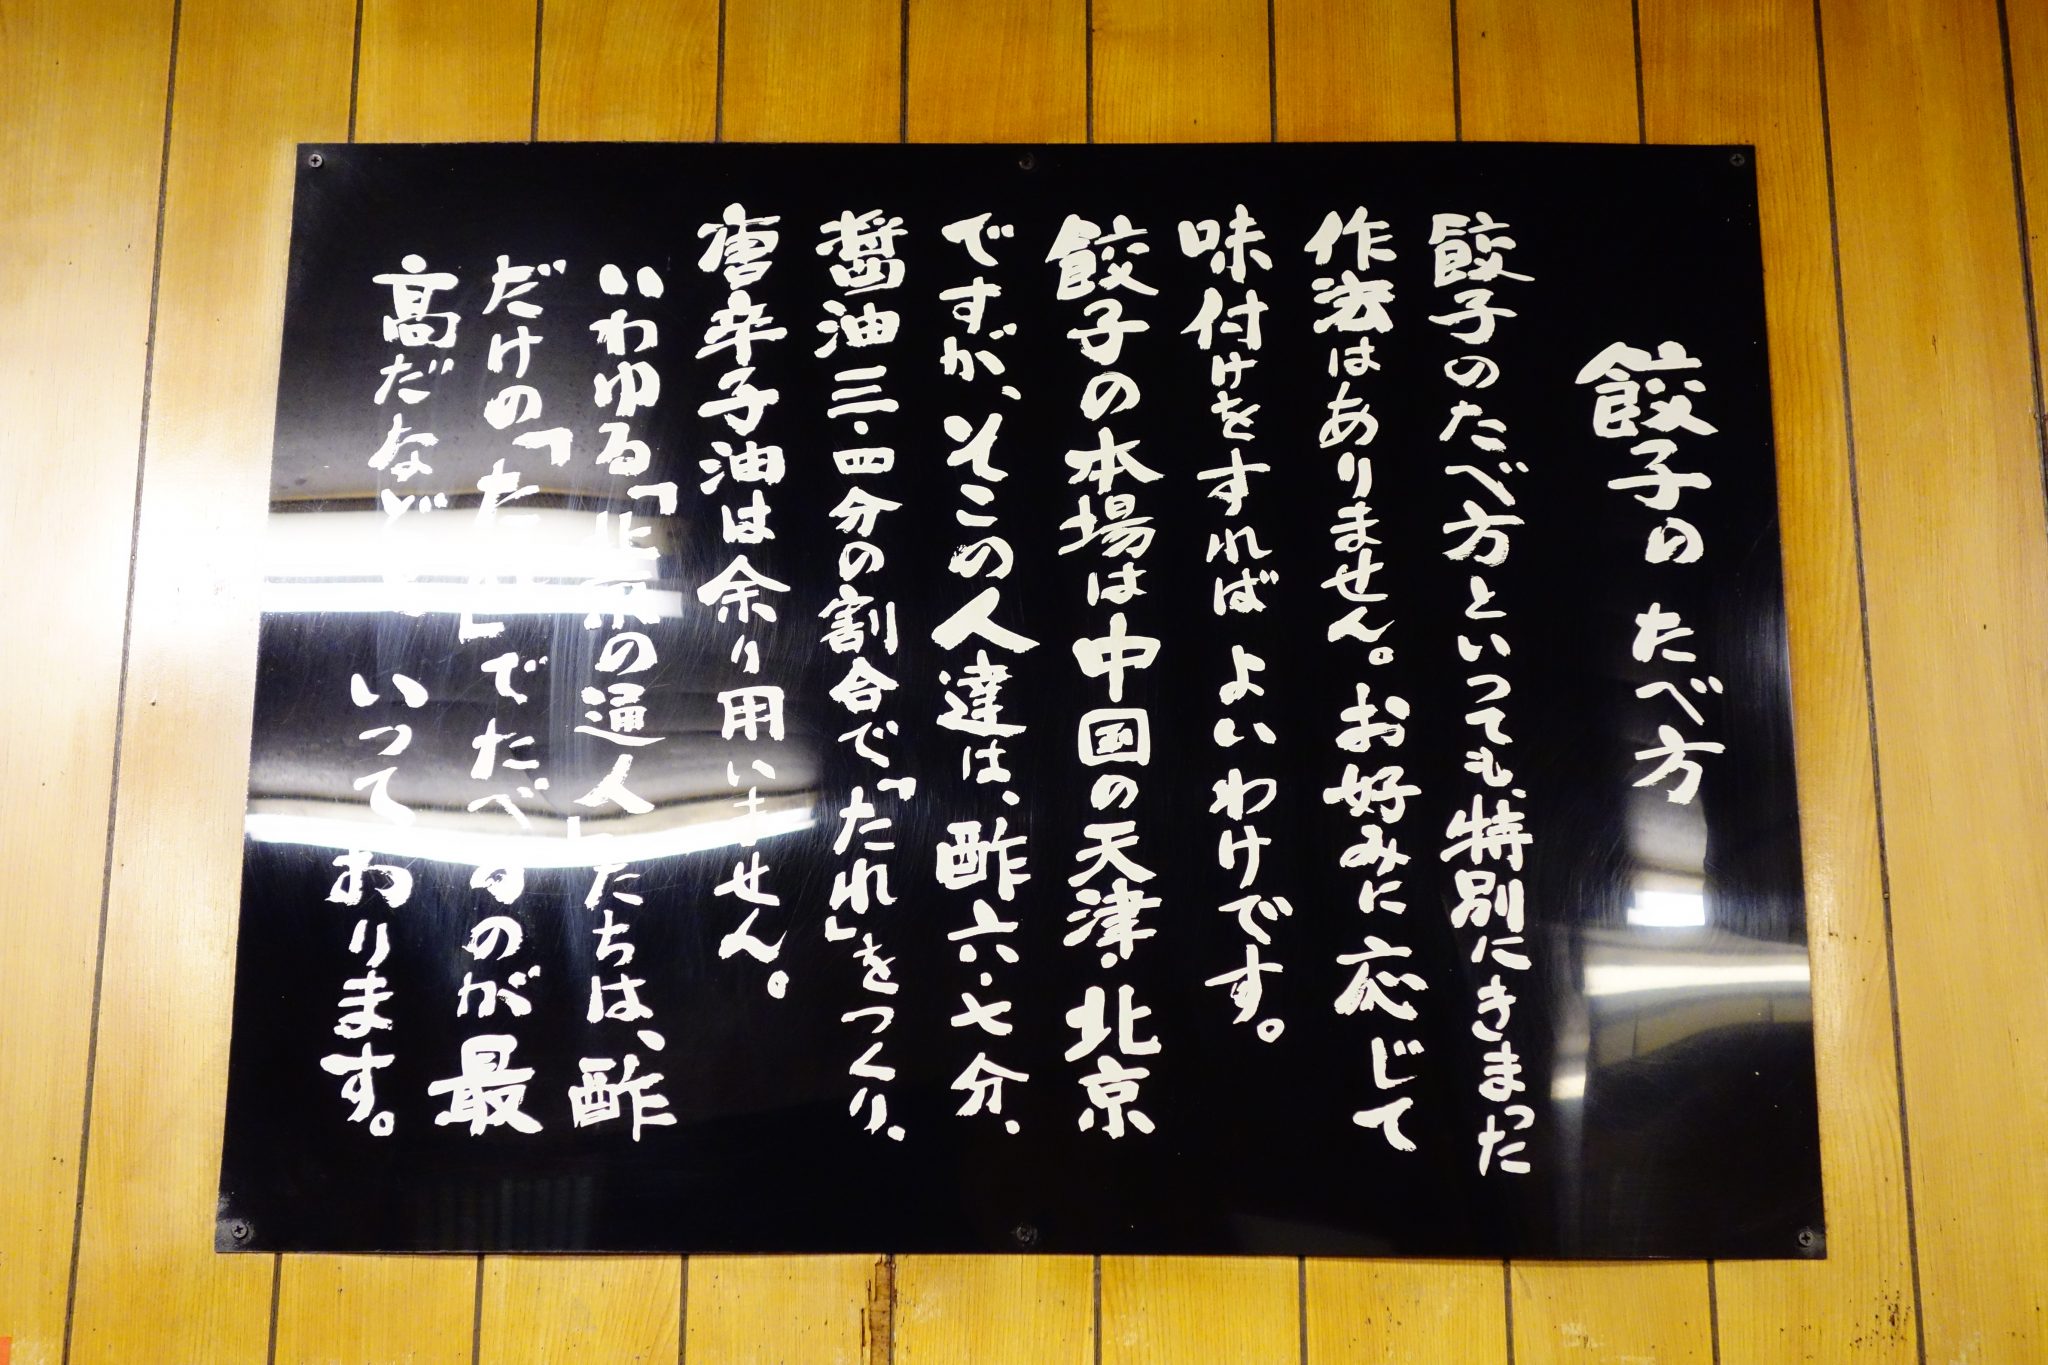 餃子の たべ方
餃子のたべ方といっても、特別にきまった
作法はありません。お好みに応じて
味付けをすれば よいわけです。
餃子の本場は中国の天津・北京
ですが、そこの人達は、酢六・七分、
醤油三・四分の割合で「たれ」をつくり、
唐辛子油は余り用いません。
いわゆる「北京の通人」たちは、酢
だけの「たれ」でたべるのが最
高だなどと いっております。